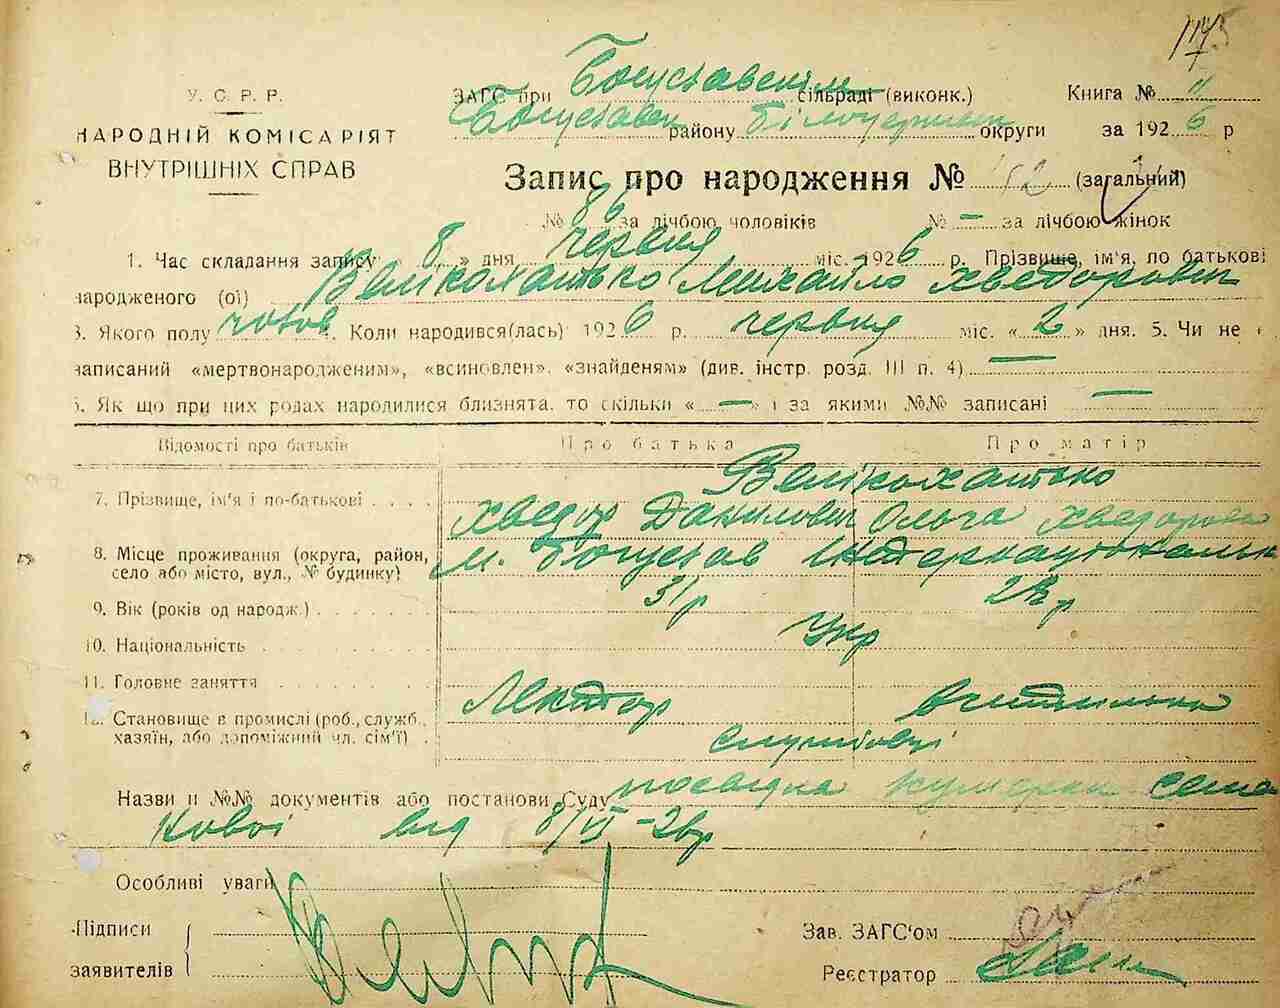 175
У. С. Р. Р.
НАРОДНІЙ КОМІСАРІЯТ
ВНУТРІШНІХ СПРАВ
ЗАГС при Богуславськім сільраді (виконк.) Книга № II
Богуславськ району Білоцерківськ округи за 1926 р
Запис про народження № 152 (загальний)
№ 86 за лічбою чоловіків № — за лічбою жінок
1. Час складання запису « 8 » дня червня міс. 1926 р. Прізвище, ім'я, по батькові
народженого (ої) Великохатько Михайло Хведорович
3. Якого полу чолов 4. Коли народився(лась) 1926 р. червня міс. « 2 » дня. 5. Чи не
записаний «мертвонародженим», «всиновлен», «знайденям» (див. інстр. розд. III п. 4) —
6. Як що при цих родах народилися близнята, то скільки « — » і за якими №№ записані —
Відомості про батьків Про батька Про матір
Великохатько
7. Прізвище, ім'я і по-батькові . . . . Хведор Данилович Ольга Хведоровна
8. Місце проживання (округа, район, м. Богуслав Інтернаціональн
село або місто, вул., № будинку)
9. Вік (років од народж.) . . . . . . . 31 р р
10. Національність . . . . . . . . . Укр
11. Головне заняття . . . . . . . . Лектор вчителька
12. Становище в промислі (роб., служб., службовці
хазяїн, або допоміжний чл. сім'ї) .
Назви и №№ документів або постанови Суду посвідка
від 8/VI-26р
Особливі уваги
Підписи
заявителів
Зав. ЗАГС'ом
Реєстратор